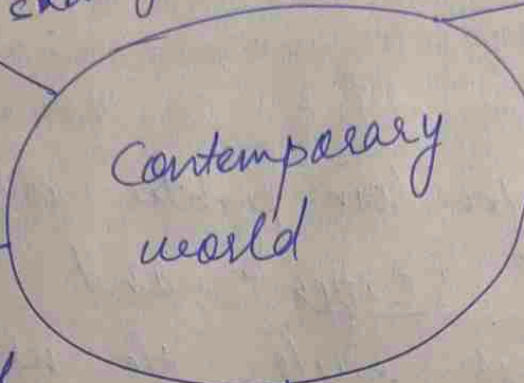 Contemporary
world